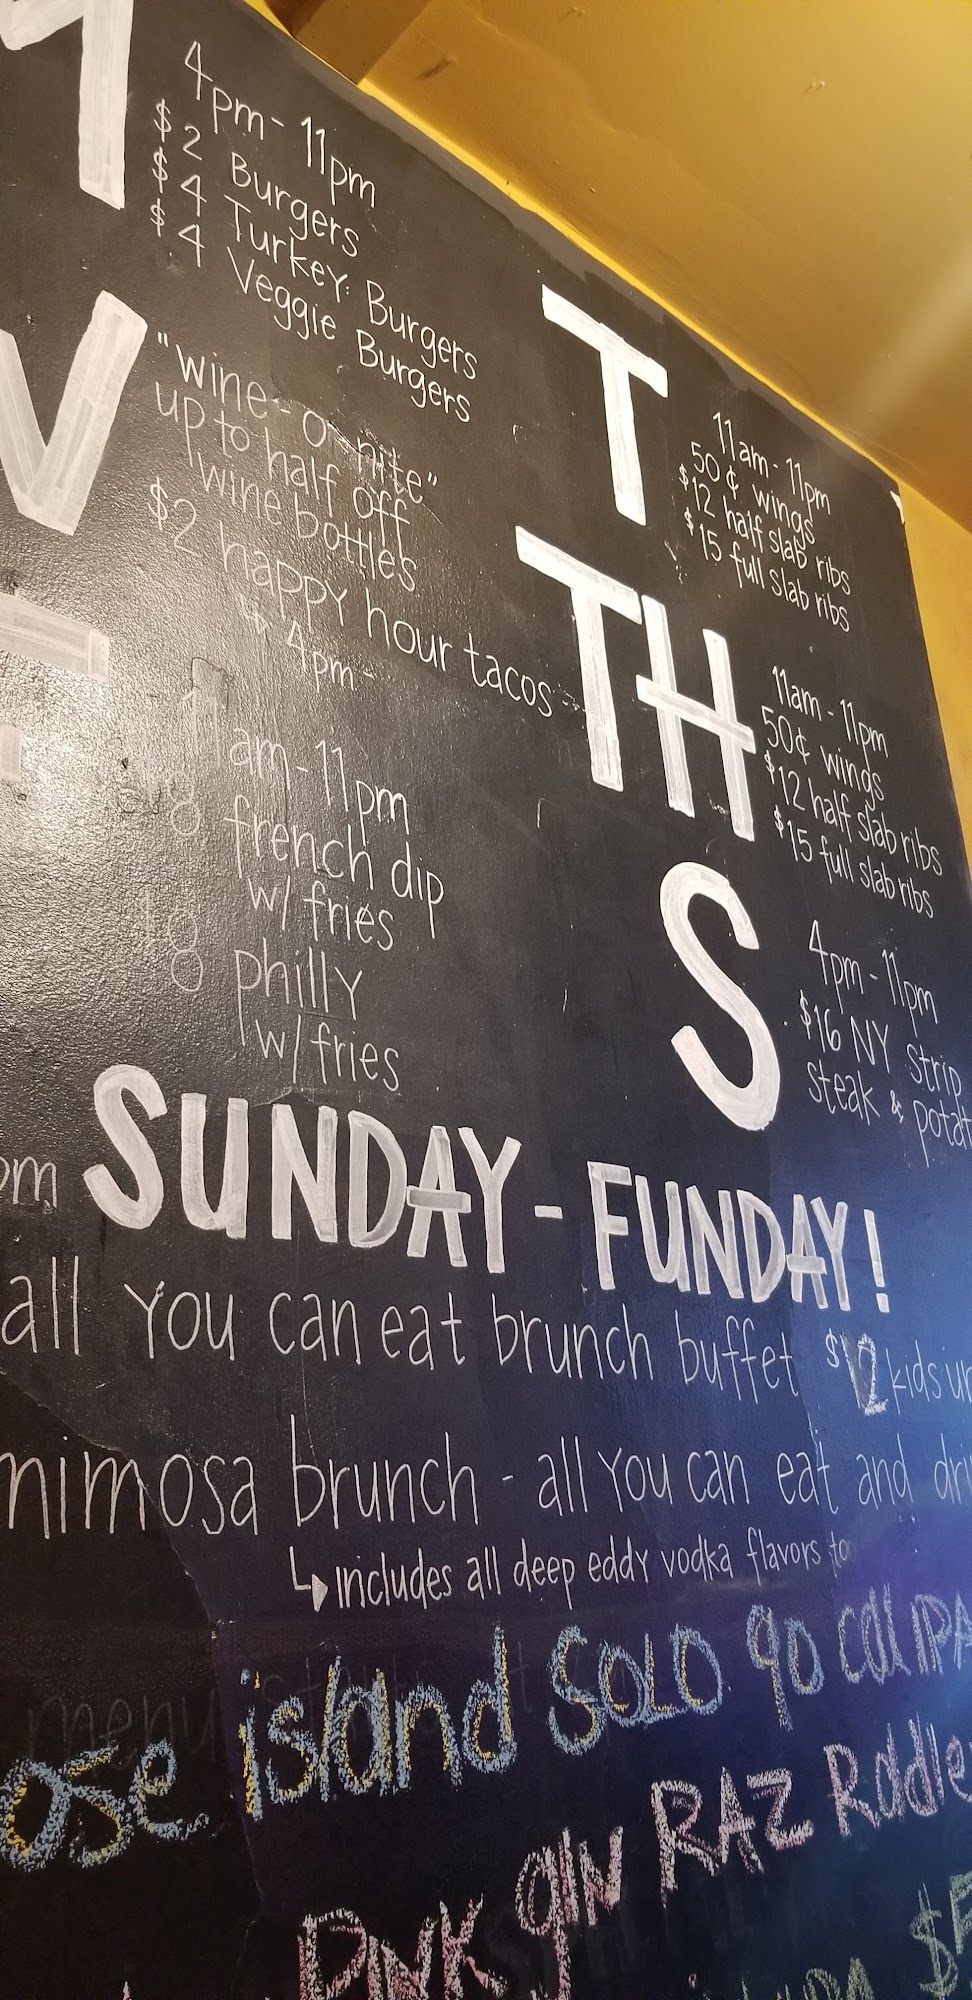 M
4pm - 11pm
$2 Burgers
$4 Turkey Burgers
$4 Veggie Burgers
W
"wine-o-nite"
up to half off
wine bottles
$2 happy hour tacos -
↳ 4pm -
11am - 11pm
french dip
w/ fries
philly
w/ fries
T
11am - 11pm
50¢ wings
$12 half slab ribs
$15 full slab ribs
TH
11am - 11pm
50¢ wings
$12 half slab ribs
$15 full slab ribs
S
4pm - 11pm
$16 NY strip
steak & potat
pm SUNDAY - FUNDAY!
all you can eat brunch buffet $12 kids un
mimosa brunch - all you can eat and dri
↳ includes all deep eddy vodka flavors too
menu
ose island SOLO 90 cal IPA
PINK GIN RAZ Riddle